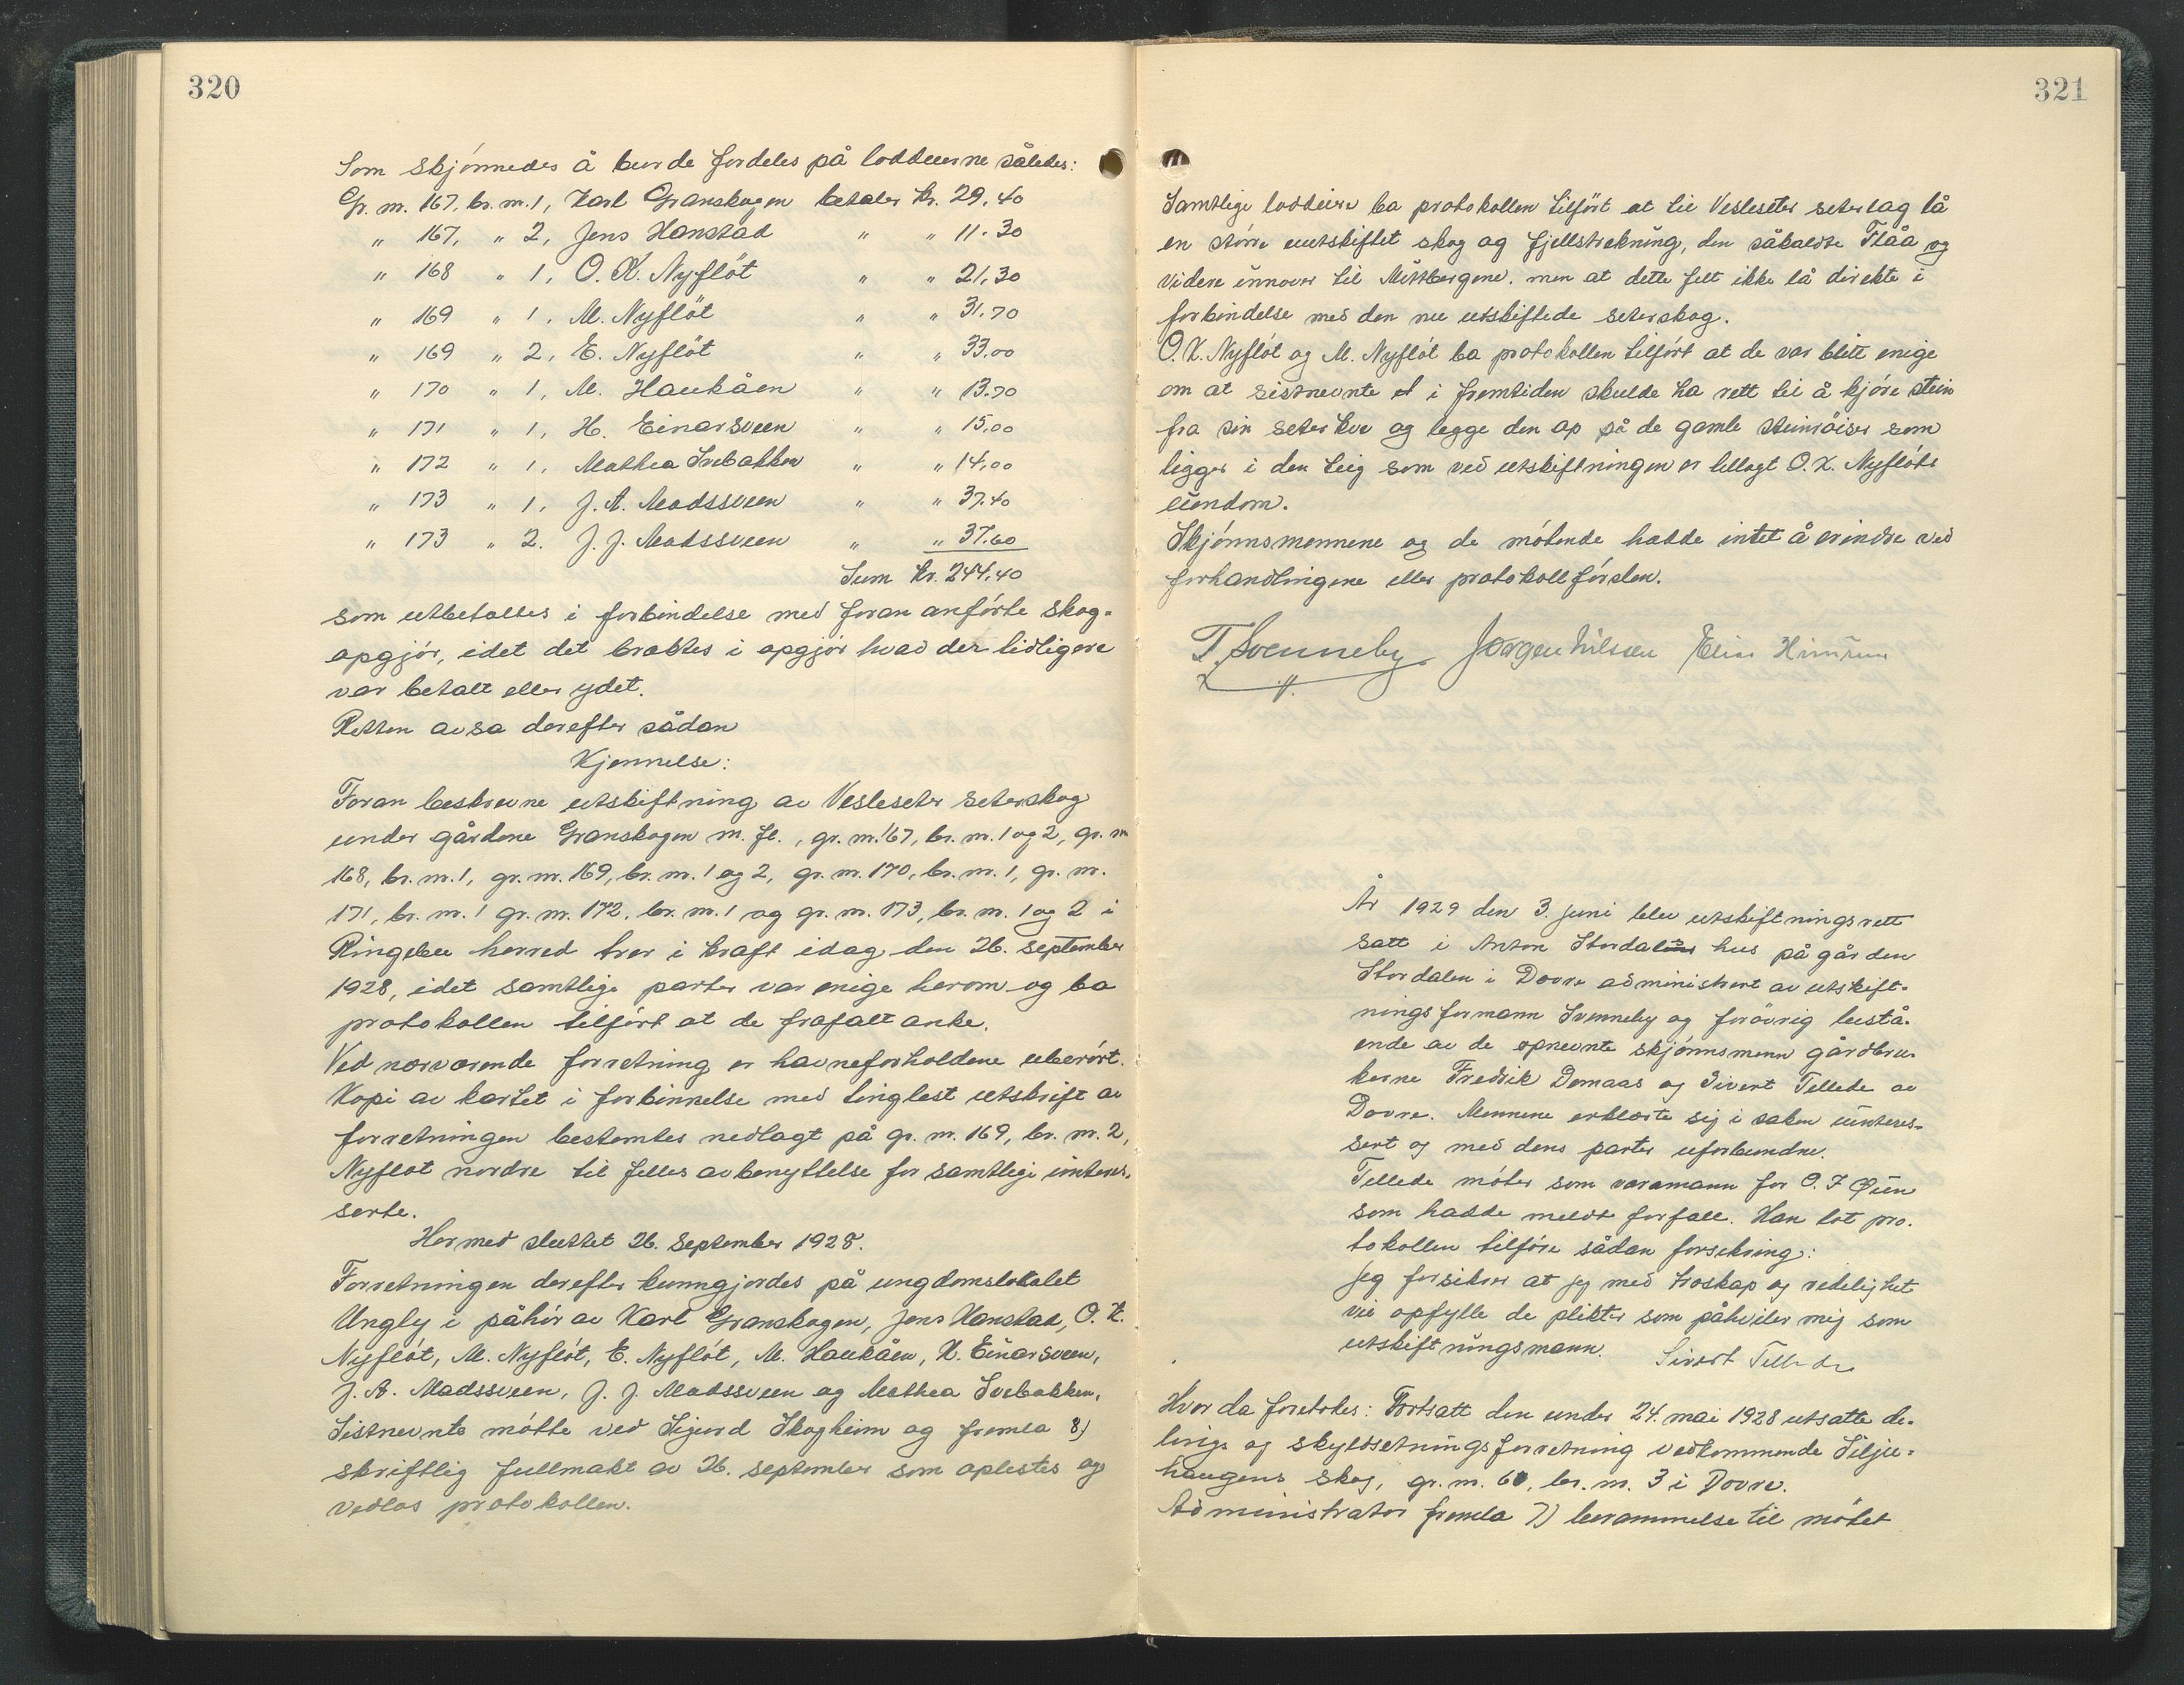 320
Som skjønnedes å burde fordeles på loddeierne således:
Gr. nr. 167, br. nr. 1, Karl Granskogen betaler kr. 29,40
" 167, " 2, Jens Hanstad " " 11.30
" 168 " 1, O. K. Nyfløt " " 21,30
" 169 " 1, M. Nyfløt " " 31.70
" 169 " 2, E. Nyfløt " " 33,00
" 170 " 1, M. Haukåen " " 13.70
" 171 " 1, H. Einarsveen " " 15,00
" 172 " 1, Mathea Svebakken " " 14,00
" 173 " 1, J. A. Madssveen " " 37.40
" 173 " 2. J. J. Madssveen " " 37.60
Sum kr. 244,40
som utbetaltes i forbindelse med foran anførte skog-
opgjør, idet det braktes i opgjør hvad der tidligere
var betalt eller ydet.
Retten avsa derefter sådan
Kjennelse:
Foran beskrevne utskiftning av Vesleseter seterskog
under gårdene Granskogen m. fl., gr. nr. 167, br. nr. 1 og 2, gr. nr
168, br. nr. 1, gr. nr. 169, br. nr. 1 og 2, gr. nr. 170, br. nr. 1, gr. nr.
171, br. nr. 1 gr. nr. 172, br. nr. 1 og gr. nr. 173, br. nr. 1 og 2 i
Ringebu herred trer i kraft idag den 26. september
1928, idet samtlige parter var enige herom og ba
protokollen tilført at de frafalt anke.
Ved nærværende forretning er havneforholdene uberørt.
Kopi av kartet i forbinnelse med tinglest utskrift av
forretningen bestemtes nedlagt på gr. nr. 169, br. nr. 2,
Nyfløt nordre til felles avbenyttelse for samtlige interes-
serte.
Hermed sluttet 26. September 1928.
Forretningen derefter kunngjordes på ungdomslokalet
Ungly i påhør av Karl Granskogen, Jens Hanstad, O. K.
Nyfløt, M. Nyfløt, E. Nyfløt, M. Haukåen, H. Einarsveen,
J. A. Madssveen, J. J. Madssveen og Mathea Svebakken,
Sistnevnte møtte ved Sigurd Skogheim og fremla 8)
skriftlig fullmakt av 26. september som oplestes og
vedlas protokollen.
321
Samtlige loddeiere ba protokollen tilført at til Vesleseter seterlag lå
en større uutskiftet skog og fjellstrekning, den såkaldte Flåa og
videre innover til Mittbergene, men at dette felt ikke lå direkte i
forbindelse med den nu utskiftede seterskog.
O. K. Nyfløt og M. Nyfløt ba protokollen tilført at de var blitt enige
om at sistnevnte i fremtiden skulde ha rett til å kjøre stein
fra sin seterkve og legge den op på de gamle steinrøiser som
ligger i den teig som ved utskiftningen er tillagt O. K. Nyfløts
eiendom.
Skjønnsmennene og de møtende hadde intet å erindre ved
forhandlingene eller protokollførslen.
T. Svenneby Jørgen Nilsen Elias
År 1929 den 3. juni blev utskiftningsrett
satt i Anton Stordalens hus på gården
Stordalen i Dovre administrert av utskift-
ningsformann Svenneby og forøvrig bestå-
ende av de opnevnte skjønnsmenn gårdbru-
kerne Fredrik Domaas og Sivert Tellede av
Dovre. Mennene erklærte sig i saken uinteres-
sert og med dens parter uforbundne.
Tellede møter som varamann for O. F Øien
som hadde meldt forfall. Han lot pro-
tokollen tilføre sådan forsikring:
Jeg forsikrer at jeg med troskap og redelighet
vil opfylle de plikter som påhviler mig som
utskiftningsmann. Sivert Tellede
Hvor da foretokes: Fortsatt den under 24. mai 1928 utsatte de-
lings og skyldsetningsforretning vedkommende Silju-
haugens skog, gr. nr. 60, br. nr. 3 i Dovre.
Administrator fremla 7) berammelse til møtet